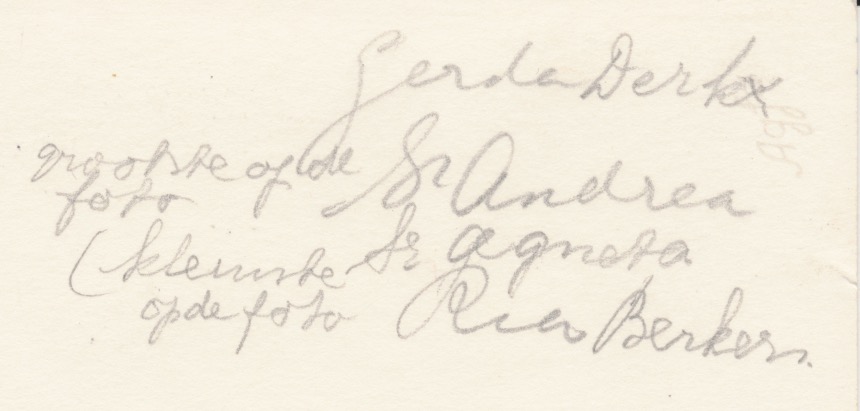 Gerda Derkx
grootste op de Sr Andrea
foto
(kleinste Sr Agneta
op de foto Rien Berkers.